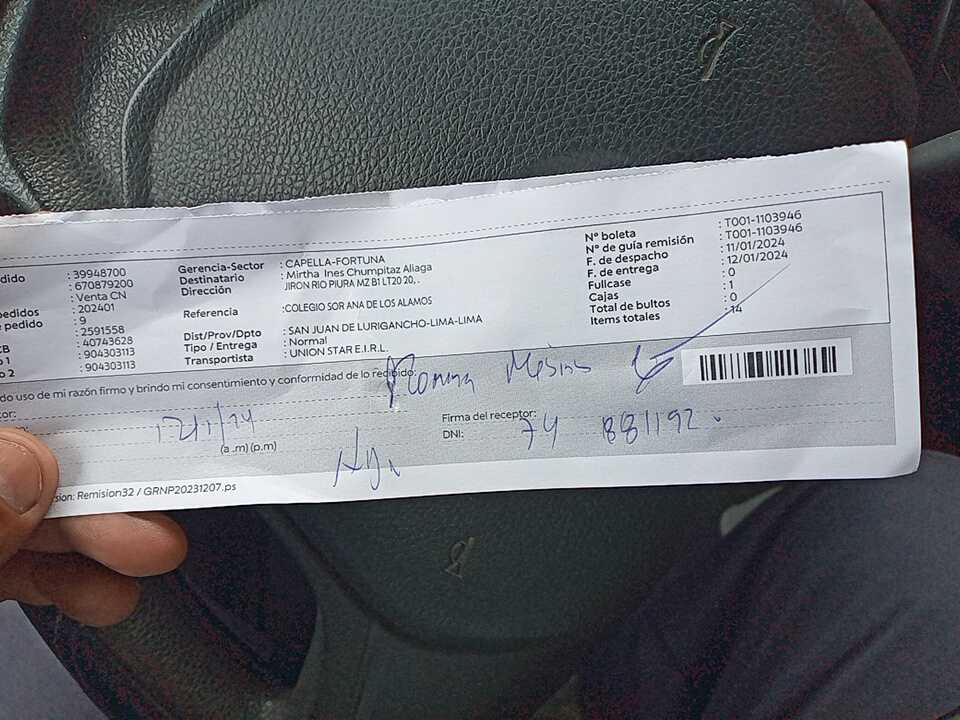 dido : 39948700
: 670879200
: Venta CN
pedidos : 202401
e pedido : 9
: 2591558
CB : 40743628
o 1 : 904303113
o 2 : 904303113
Gerencia-Sector : CAPELLA-FORTUNA
Destinatario : Mirtha Ines Chumpitaz Aliaga
Dirección JIRON RIO PIURA MZ B1 LT20 20, .
Referencia :COLEGIO SOR ANA DE LOS ALAMOS
Dist/Prov/Dpto : SAN JUAN DE LURIGANCHO-LIMA-LIMA
Tipo / Entrega : Normal
Transportista : UNION STAR E.I.R.L.
N° boleta : T001-1103946
N° de guía remisión : T001-1103946
F. de despacho : 11/01/2024
F. de entrega : 12/01/2024
Fullcase : 0
Cajas : 1
Total de bultos : 0
Items totales : 14
do uso de mi razón firmo y brindo mi consentimiento y conformidad de lo recibido:
tor:
12/1/24
(a .m) (p.m)
Firma del receptor:
DNI: 74 881192.
sion: Remision32 / GRNP20231207.ps